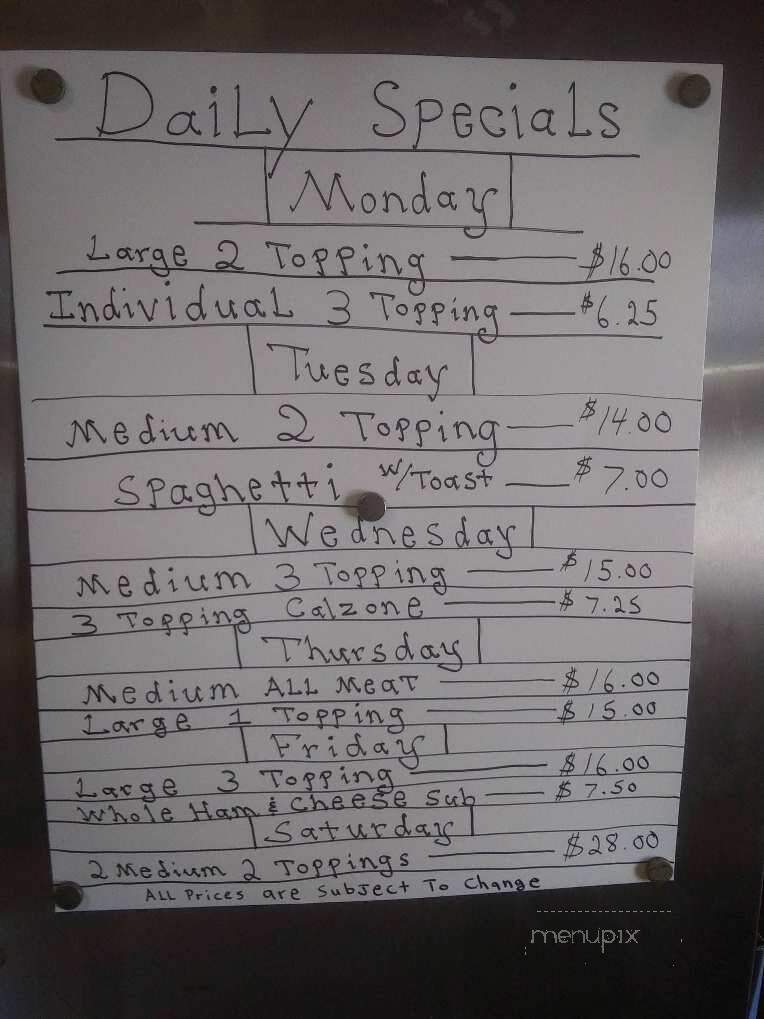 Daily Specials
Monday
Large 2 Topping — $16.00
Individual 3 Topping — $6.25
Tuesday
Medium 2 Topping — $14.00
Spaghetti w/Toast — $7.00
Wednesday
Medium 3 Topping — $15.00
3 Topping Calzone — $7.25
Thursday
Medium ALL Meat — $16.00
Large 1 Topping — $15.00
Friday
Large 3 Topping — $16.00
Whole Ham & Cheese Sub — $7.50
Saturday
2 Medium 2 Toppings — $28.00
ALL Prices are Subject To Change
menupix